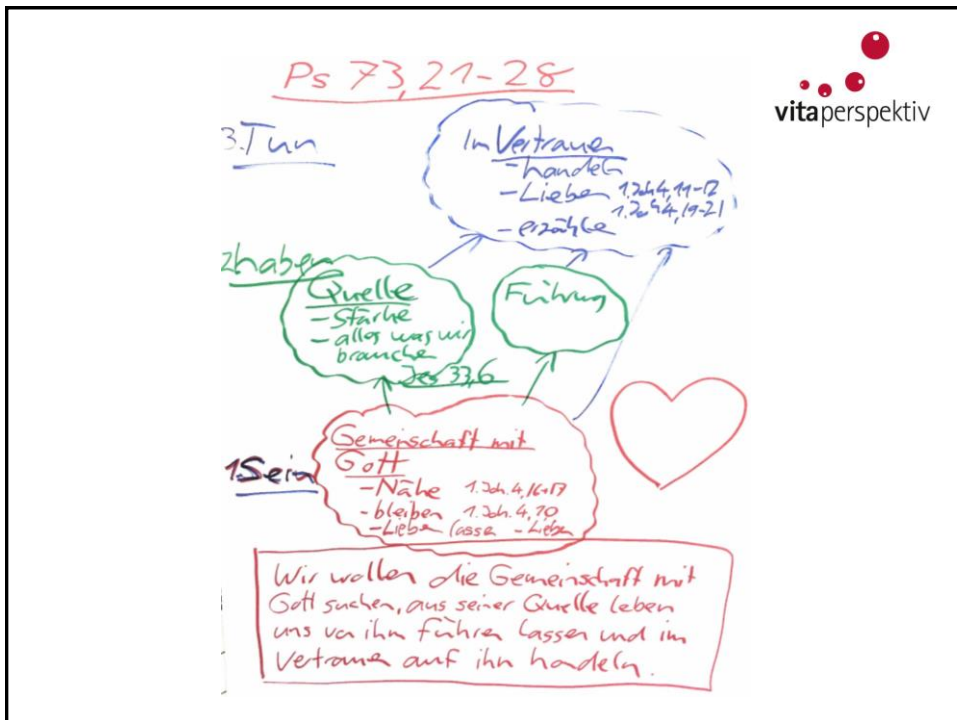 Ps 73,21-28
vitaperspektiv
3. Tun
Im Vertrauen
- handeln
- Lieben 1.Joh4,11-12
1.Joh4,19-21
- erzähle
2haben
Quelle
- Stärke
- alles was wir
brauche
Jes 33,6
Führung
1.Sein
Gemeinschaft mit
Gott
- Nähe 1.Joh.4,16+17
- bleiben 1.Joh.4,10
- Lieben lasse - Lieben
Wir wollen die Gemeinschaft mit
Gott suchen, aus seiner Quelle leben
uns vo ihm führen lassen und im
Vertraue auf ihn handeln.